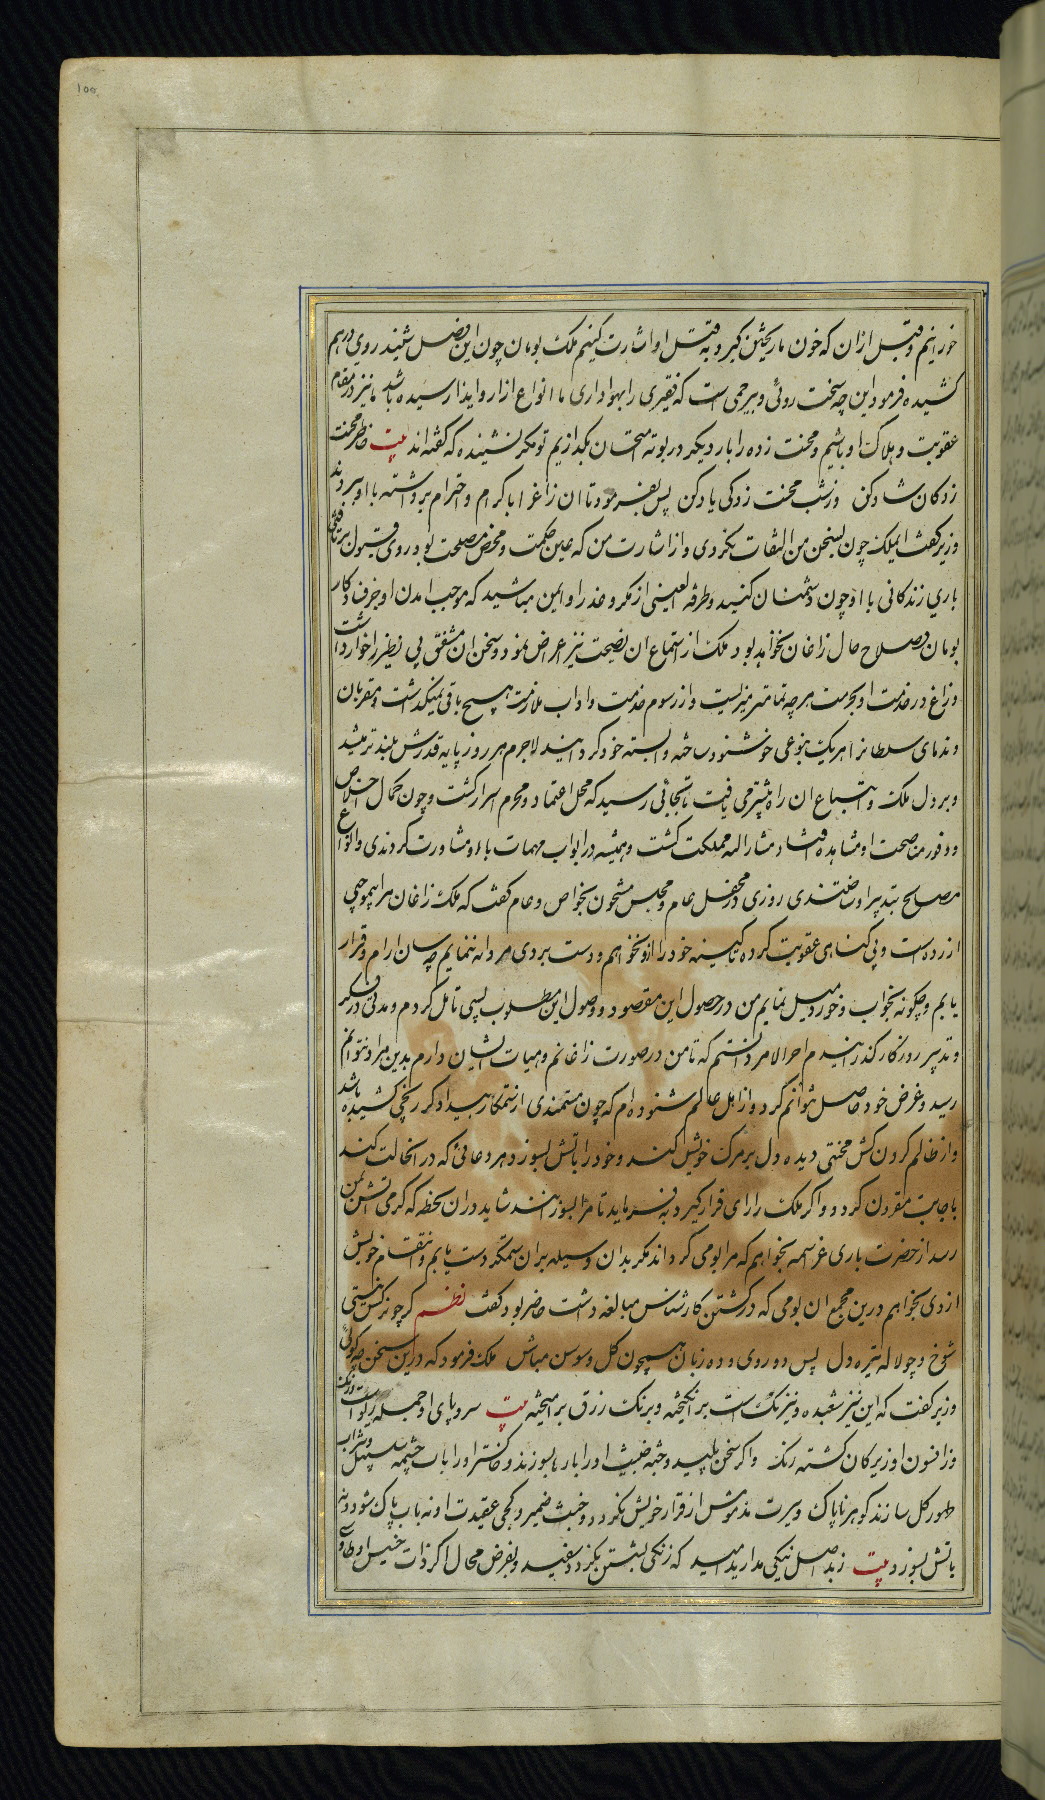 ۱۵۵
خورانیم و قبل ازان که خون ما ریختن گیرد بقتل او اشارت کنیم ملک بومان چون این فصل شنید روی درهم
کشیده فرمود این چه سخت روئی و بیرحمی است که فقیری را بهواداری ما انواع ازار و ایذا رسیده باشد ما نیز در مقام
عقوبت و هلاک او باشیم و محنت زده را بار دیگر در بوته امتحان بگدازیم تو مگر نشنیده که گفته اند بیت خاطر محنت
زدگان شاد کن وز شب محنت زدگی یاد کن پس بفرمود تا ان زاغ را با کرام و احترام برداشته با او ببردند
وزیر گفت ای ملک چون بسخن من التفات نکردی و از اشارت من که عین حکمت و محض مصلحت بود روی قبول برتافتی
باری زندگانی با او چون دشمنان کنید و طرفة العینی از مکر و غدر او ایمن مباشید که موجب امدن او جز فساد کار
بومان و صلاح حال زاغان نخواهد بود ملک از استماع ان نصیحت نیز اعراض نمود و سخن ان مشفق بی نظیر را خوار داشت
و زاغ در خدمت او بحرمت هر چه تمامتر میزیست و از رسوم خدمت و اداب ملازمت هیچ باقی نمیگذاشت و مقربان
و ندمای سلطانرا هر یک بنوعی خوشنود ساخته وابسته خود گردانید لاجرم هر روز پایه قدرش بلندتر میشد
و بر دل ملک و اتباع ان راه بیشتر می یافت تا بجائی رسید که محل اعتماد و محرم اسرار گشت و چون کمال اخلاص
و وفور مناصحت او مشاهده افتاد مشار الیه مملکت گشت و همیشه در ابواب مهمات با او مشاورت کردندی و انواع
مصالح بتدبیر او ساختندی روزی در محفل عام و مجلس مشحون بخواص و عوام گفت که ملک زاغان مرا بی موجبی
ازرده است و بی گناهی عقوبت کرده تا کینه خود را ازو نخواهم و دست بردی مردانه ننمایم چه سان ارام و قرار
یابم و چگونه بخواب و خور میل نمایم من در حصول این مقصود و وصول این مطلوب بسی تامل کردم و مدتی در فکر
و تدبیر روزگار گذرانیدم اخر الامر دانستم که تا من در صورت زاغانم و هیات ایشان دارم بدین مراد نتوانم
رسید و غرض خود حاصل نتوانم کرد و از اهل عالم شنوده ام که چون مستمندی از ستمکار بیدادگر رنجی کشیده باشد
و از ظالم گردن کش محنتی دیده دل بر مرگ خویش نهد و خود را باتش بسوزد هر دعائی که در انحالت کند
باجابت مقرون گردد و اگر ملک را رای قرار گیرد بفرماید تا مرا بسوزانند شاید دران لحظه که گرمی اتش بمن
رسد از حضرت باری عز اسمه بخواهم که مرا بومی گرداند مگر بدان وسیله بران ستمگر دست یابم و انتقام خویش
از وی بخواهم درین مجمع ان بومی که در کشتن کارشناس مبالغه داشت حاضر بود گفت نظم گر چو نرگس نیستی
شوخ و چو لاله تیره دل پس دو روی و ده زبان همچون گل و سوسن مباش ملک فرمود که درین سخن چه گوئی
وزیر گفت که این نیز شعبده و نیرنگ است بر انگیخته و برنگ زرق برامیخته بیت سر و پای او جمله زیو است و رنگ
وز افسون او زیرکان گشته دنگ و اگر شخص پلید و جثه خبیث او را بارها بسوزند و خاکستر او را باب چشمه سلسبیل و شراب
طهور گل سازند گوهر ناپاک و سیرت مذموش از قرار خویش نگردد و خبث ضمیر و کجی عقیدت او نه باب پاک شود و نه
باتش بسوزد بیت ز بد اصل نیکی مدارید امید که زنگی بشستن نگردد سفید و بفرض محال اگر ذات خسیس او طاوسی